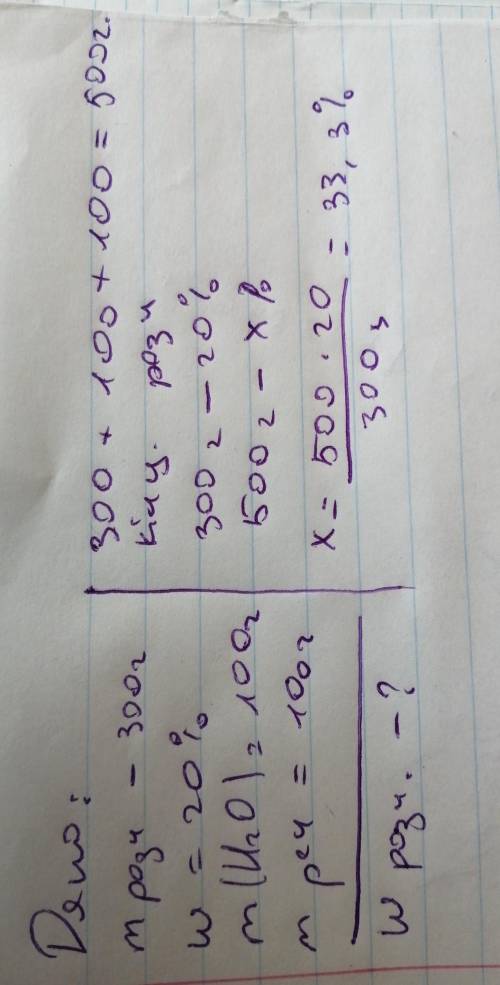 Дано:
m розч - 300г
w = 20%
m(H₂O) = 100г
m реч = 100г
w розч. - ?
300 + 100 + 100 = 500г.
кінц. розч
300г - 20%
500г - x%
x = 500 · 20 / 300г = 33,3%